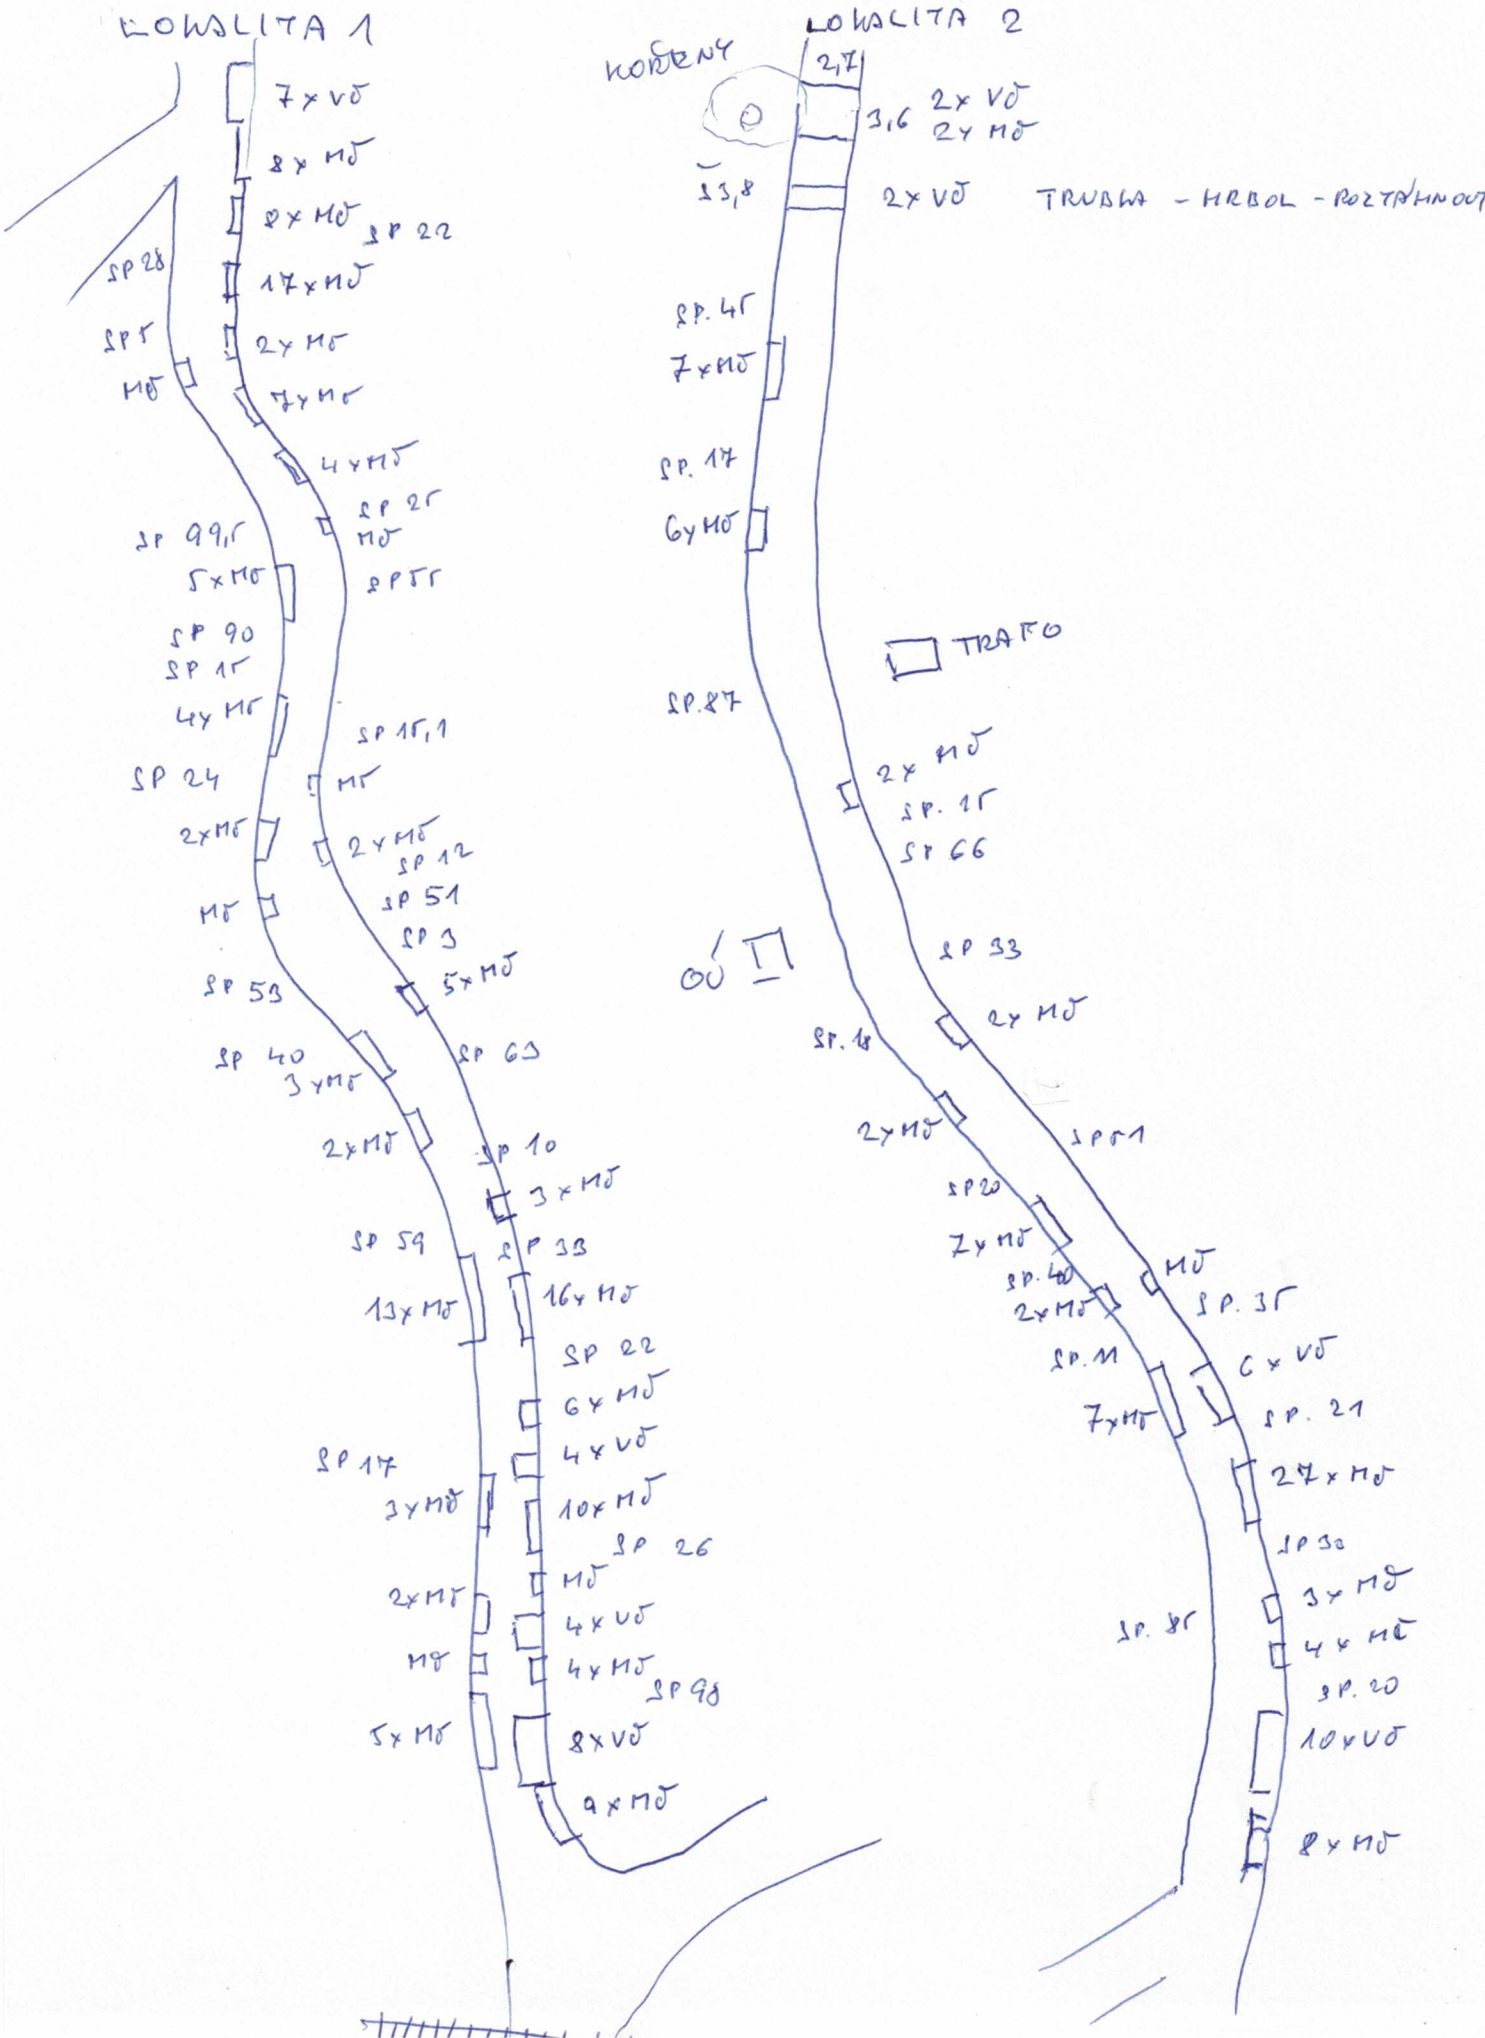 LOKALITA 1
7 x VÖ
8 x MÖ
8 x MÖ
SP 22
SP 28
17 x MÖ
SP 5
2 x MÖ
MÖ
7 x MÖ
4 x MÖ
SP 25
MÖ
SP 99,5
5 x MÖ
SP 55
SP 90
SP 15
4 x MÖ
SP 15,1
SP 24
MÖ
2 x MÖ
2 x MÖ
SP 12
MÖ
SP 51
SP 3
SP 53
5 x MÖ
SP 40
3 x MÖ
SP 63
2 x MÖ
SP 10
3 x MÖ
SP 59
SP 33
13 x MÖ
16 x MÖ
SP 22
6 x MÖ
SP 17
4 x VÖ
3 x MÖ
10 x MÖ
SP 26
2 x MÖ
MÖ
4 x VÖ
MÖ
4 x MÖ
SP 98
5 x MÖ
8 x VÖ
9 x MÖ
LOKALITA 2
KOŘENY
2,7
3,6
2 x VÖ
2 x MÖ
Š 3,8
2 x VÖ
TRUBKA - HRBOL - ROZTÁHNOUT
SP. 45
7 x MÖ
SP. 17
6 x MÖ
TRAFO
SP. 87
2 x MÖ
SP. 25
SP 66
OÚ
SP 33
2 x MÖ
SP. 18
2 x MÖ
SP 51
SP 20
7 x MÖ
MÖ
SP. 40
2 x MÖ
SP. 35
SP. 11
6 x VÖ
7 x MÖ
SP. 21
27 x MÖ
SP 30
3 x MÖ
SP. 85
4 x MÖ
SP. 20
10 x VÖ
8 x MÖ